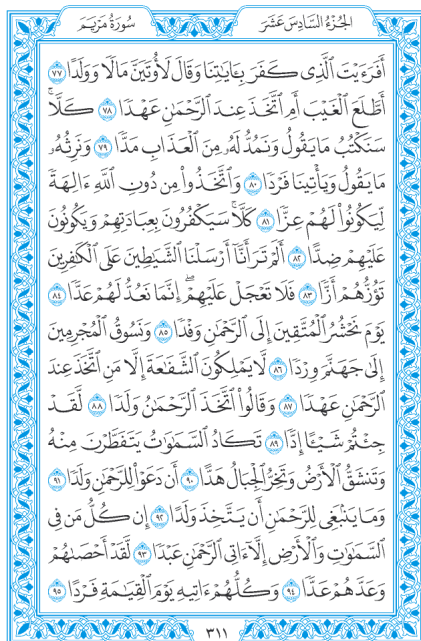 الجزء السادس عشر
سورة مريم
أَفَرَءَيْتَ ٱلَّذِى كَفَرَ بِـَٔايَـٰتِنَا وَقَالَ لَأُوتَيَنَّ مَالًا وَوَلَدًا ٧٧
أَطَّلَعَ ٱلْغَيْبَ أَمِ ٱتَّخَذَ عِندَ ٱلرَّحْمَـٰنِ عَهْدًا ٧٨ كَلَّا ۚ
سَنَكْتُبُ مَا يَقُولُ وَنَمُدُّ لَهُۥ مِنَ ٱلْعَذَابِ مَدًّا ٧٩ وَنَرِثُهُۥ
مَا يَقُولُ وَيَأْتِينَا فَرْدًا ٨٠ وَٱتَّخَذُوا۟ مِن دُونِ ٱللَّهِ ءَالِهَةً
لِّيَكُونُوا۟ لَهُمْ عِزًّا ٨١ كَلَّا ۚ سَيَكْفُرُونَ بِعِبَادَتِهِمْ وَيَكُونُونَ
عَلَيْهِمْ ضِدًّا ٨٢ أَلَمْ تَرَ أَنَّآ أَرْسَلْنَا ٱلشَّيَـٰطِينَ عَلَى ٱلْكَـٰفِرِينَ
تَؤُزُّهُمْ أَزًّا ٨٣ فَلَا تَعْجَلْ عَلَيْهِمْ ۖ إِنَّمَا نَعُدُّ لَهُمْ عَدًّا ٨٤
يَوْمَ نَحْشُرُ ٱلْمُتَّقِينَ إِلَى ٱلرَّحْمَـٰنِ وَفْدًا ٨٥ وَنَسُوقُ ٱلْمُجْرِمِينَ
إِلَىٰ جَهَنَّمَ وِرْدًا ٨٦ لَّا يَمْلِكُونَ ٱلشَّفَـٰعَةَ إِلَّا مَنِ ٱتَّخَذَ عِندَ
ٱلرَّحْمَـٰنِ عَهْدًا ٨٧ وَقَالُوا۟ ٱتَّخَذَ ٱلرَّحْمَـٰنُ وَلَدًا ٨٨ لَّقَدْ
جِئْتُمْ شَيْـًٔا إِدًّا ٨٩ تَكَادُ ٱلسَّمَـٰوَٰتُ يَتَفَطَّرْنَ مِنْهُ
وَتَنشَقُّ ٱلْأَرْضُ وَتَخِرُّ ٱلْجِبَالُ هَدًّا ٩٠ أَن دَعَوْا۟ لِلرَّحْمَـٰنِ وَلَدًا ٩١
وَمَا يَنۢبَغِى لِلرَّحْمَـٰنِ أَن يَتَّخِذَ وَلَدًا ٩٢ إِن كُلُّ مَن فِى
ٱلسَّمَـٰوَٰتِ وَٱلْأَرْضِ إِلَّآ ءَاتِى ٱلرَّحْمَـٰنِ عَبْدًا ٩٣ لَّقَدْ أَحْصَىٰهُمْ
وَعَدَّهُمْ عَدًّا ٩٤ وَكُلُّهُمْ ءَاتِيهِ يَوْمَ ٱلْقِيَـٰمَةِ فَرْدًا ٩٥
٣١١